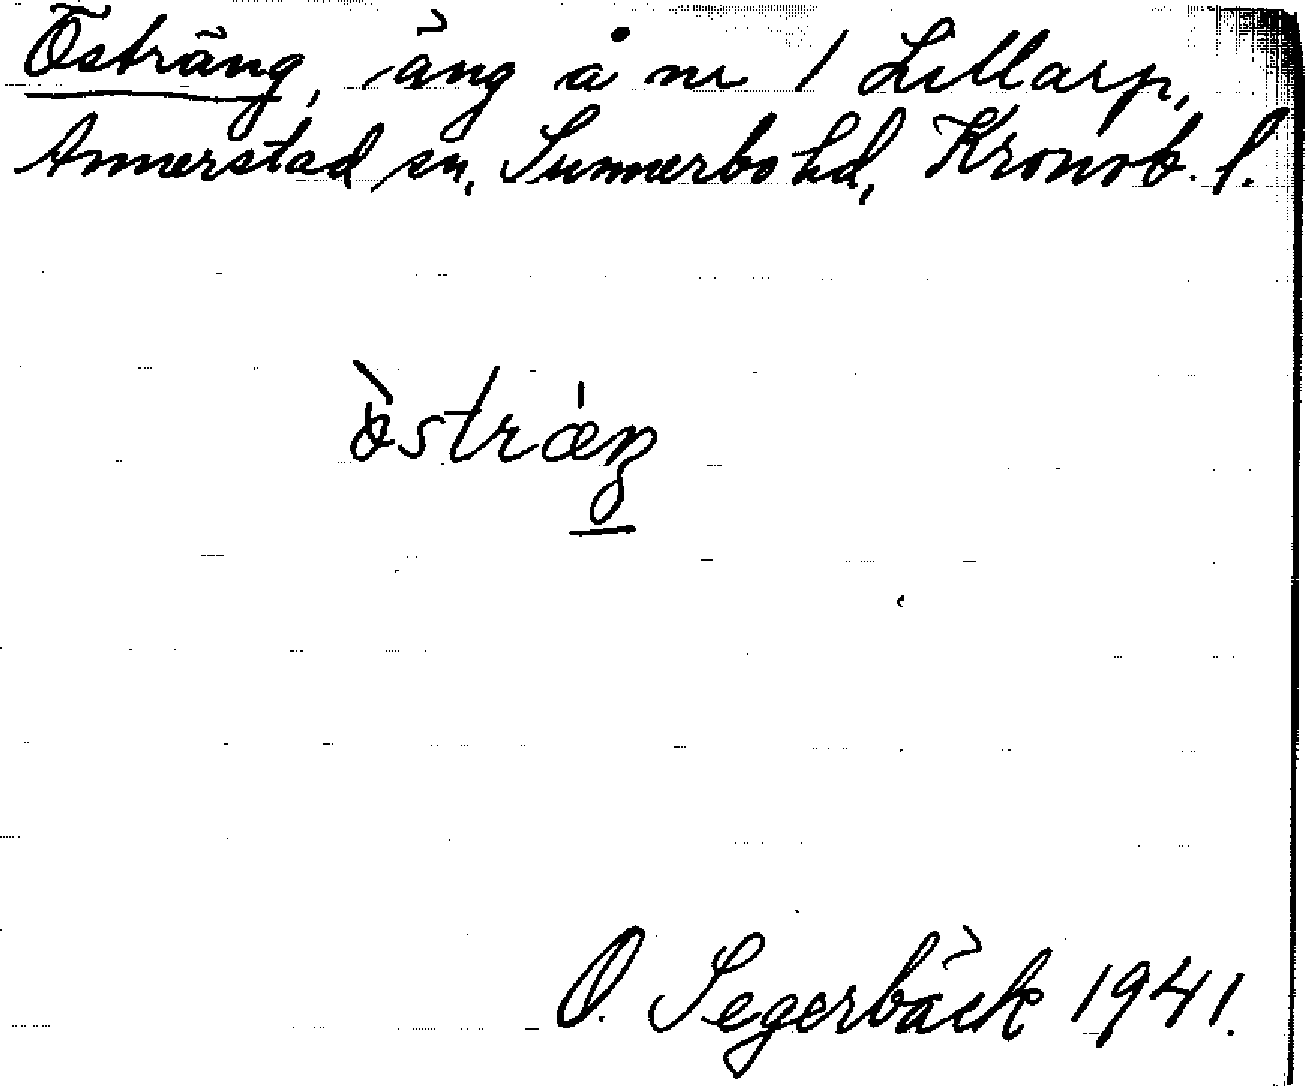 Östräng, äng å nr 1 Lillarp,
Annerstad sn, Sunnerbo hd, Kronob. l.
òstræŋ
O. Segerbäck 1941.